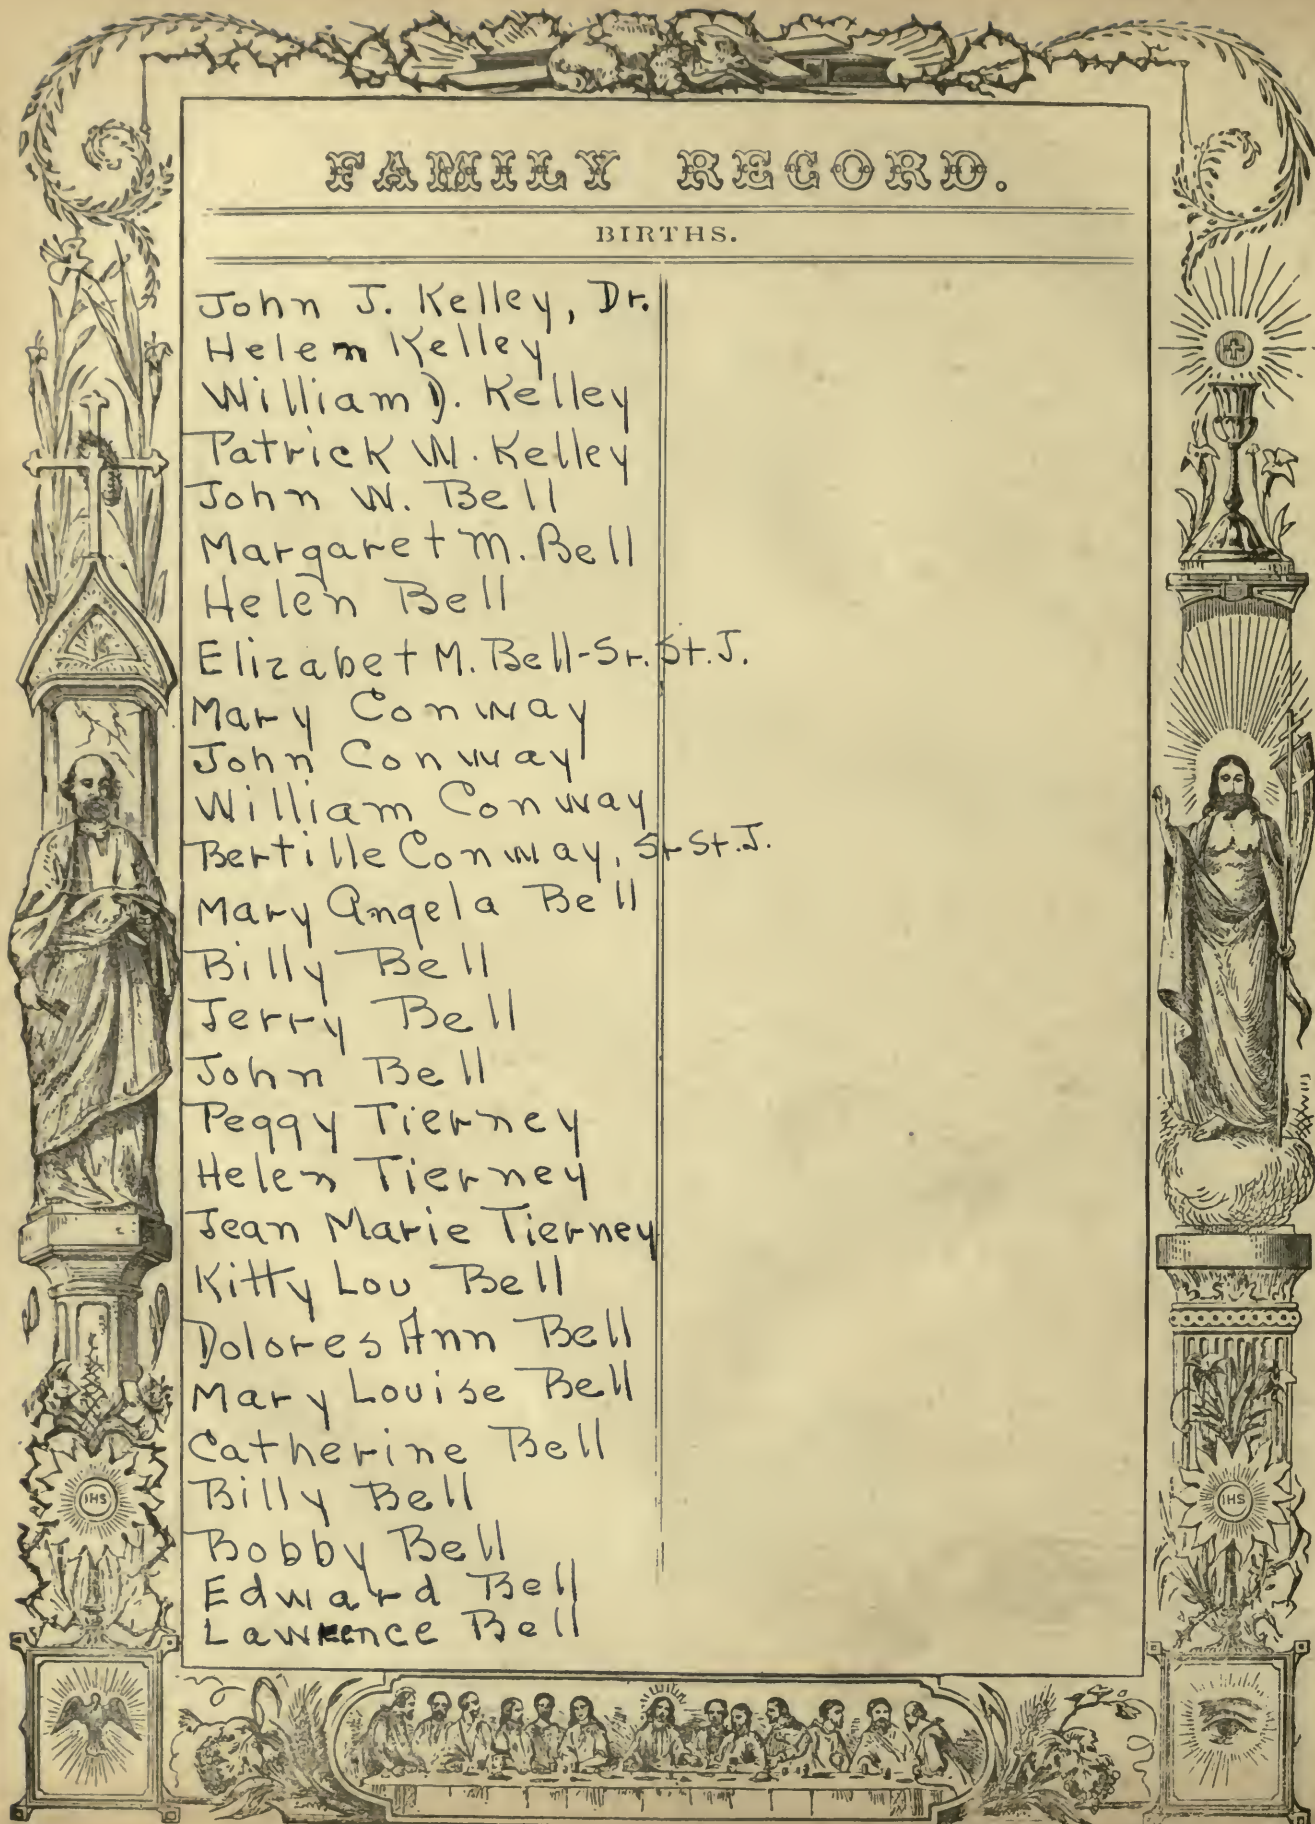 FAMILY RECORD.
BIRTHS.
John J. Kelley, Dr.
Helen Kelley
William D. Kelley
Patrick W. Kelley
John W. Bell
Margaret M. Bell
Helen Bell
Elizabet M. Bell-Sr. St. J.
Mary Conway
John Conway
William Conway
Bertille Conway, Sr St. J.
Mary Angela Bell
Billy Bell
Jerry Bell
John Bell
Peggy Tierney
Helen Tierney
Jean Marie Tierney
Kitty Lou Bell
Dolores Ann Bell
Mary Louise Bell
Catherine Bell
Billy Bell
Bobby Bell
Edward Bell
Lawrence Bell
IHS
IHS